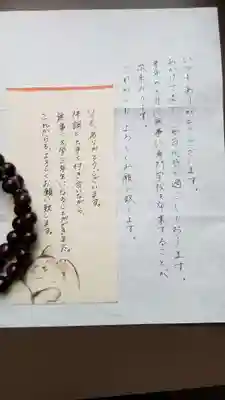 いつもありがとうございます。
おかげさまで毎日元気に過ごしております。
出来ります。
これからもよろしくお願い致します。
いつもありがとうございます。
体調と上手く付き合いながら
無事大学三年生になることができました。
これからもよろしくお願い致します。